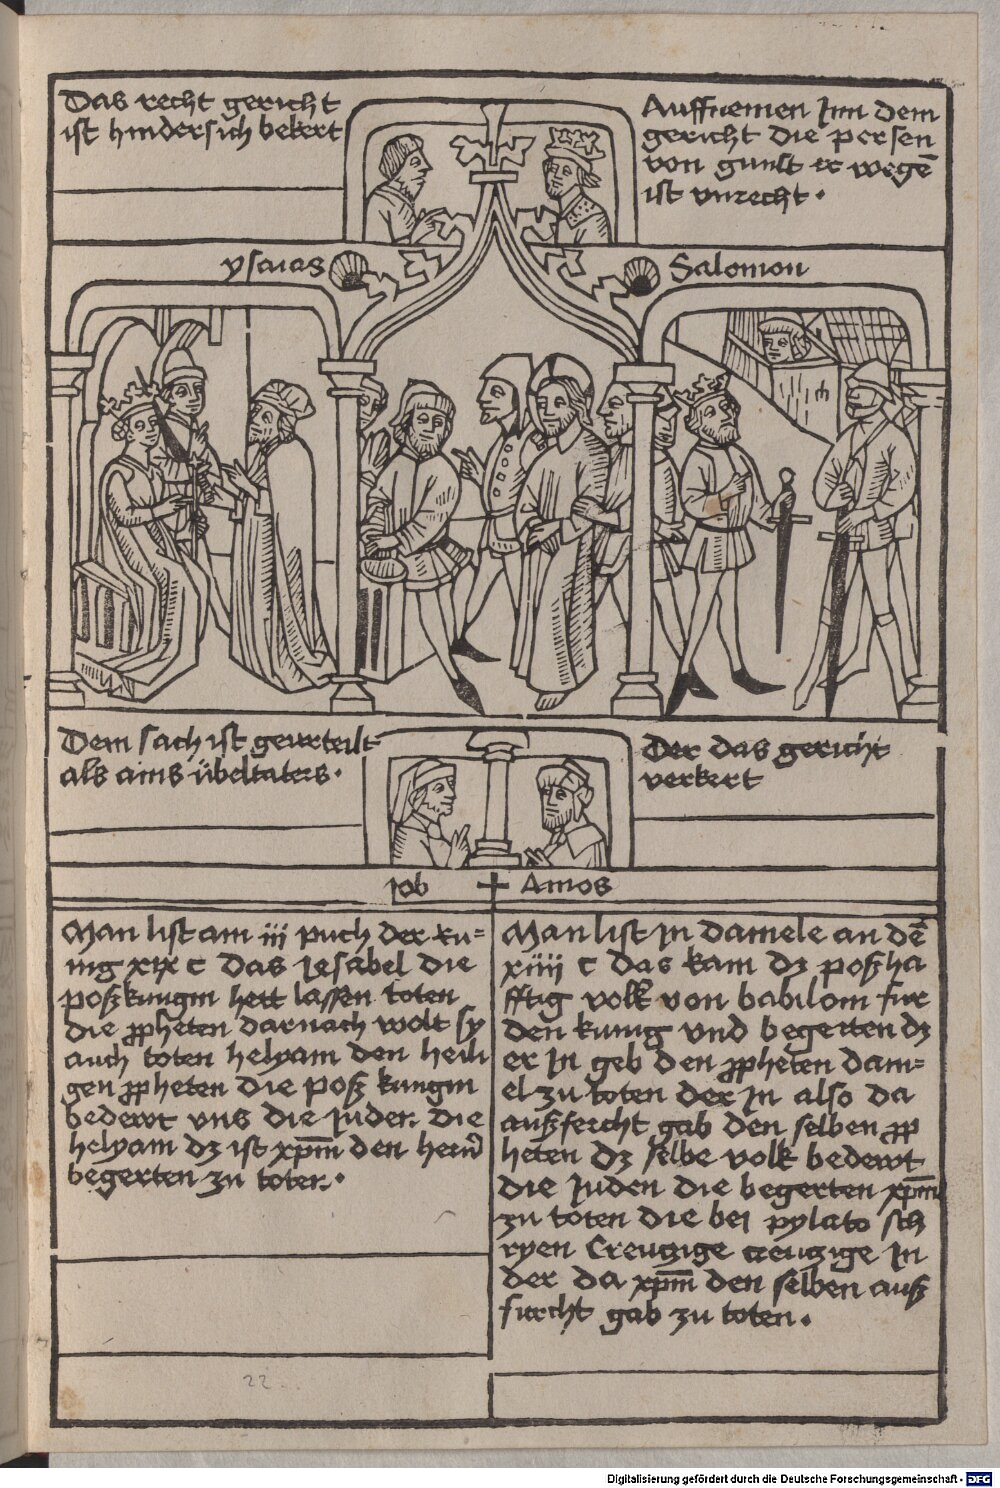 Das recht gericht
ist hindersich bekert
Auffnemen Inn dem
gericht die persen
von gunst er wegē
ist vnrecht .
ysaias
Salomon
Dem sach ist geurteilt
als ains übeltaters .
Der das gericht
verkert
Job + Amos
Man list am iii puch der ku=
nig xix c das Jesabel die
poß kungin hett lassen toten
die ppheten darnach wolt sy
auch toten helyam den heili
gen ppheten die poß kungin
bedewt vns die Juden. Die
helyam dz ist xpm den hern
begerten zu toten .
Man list In Daniele an dē
xiiii c das kam dz poßha
fftig volk von babilom fur
den kunig vnd begerten dz
er In geb den ppheten dani=
el zu toten der In also da
auß fercht gab den selben pp
heten dz selbe volk bedewt
die Juden die begerten xpm
zu toten die bei pylato sch
ryen Creutzige creutzige In
der da xpm den selben auß
furcht gab zu toten .
22
Digitalisierung gefördert durch die Deutsche Forschungsgemeinschaft - DFG